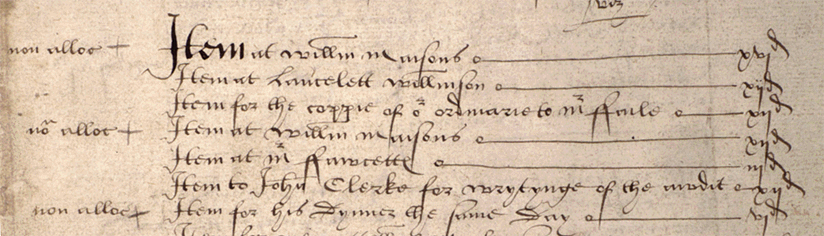 viz
non alloc + Item at willm masons xvjd
Item at Lancelett willmson xijd
Item for the coppie of or ordinarie to mr ffaile xijd
nō alloc + Item at willm masons xijd
Item at mr ffawcette iiijd
Item to John Clerke for wrytynge of the awdit xijd
non alloc + Item for his dynner the same day vjd